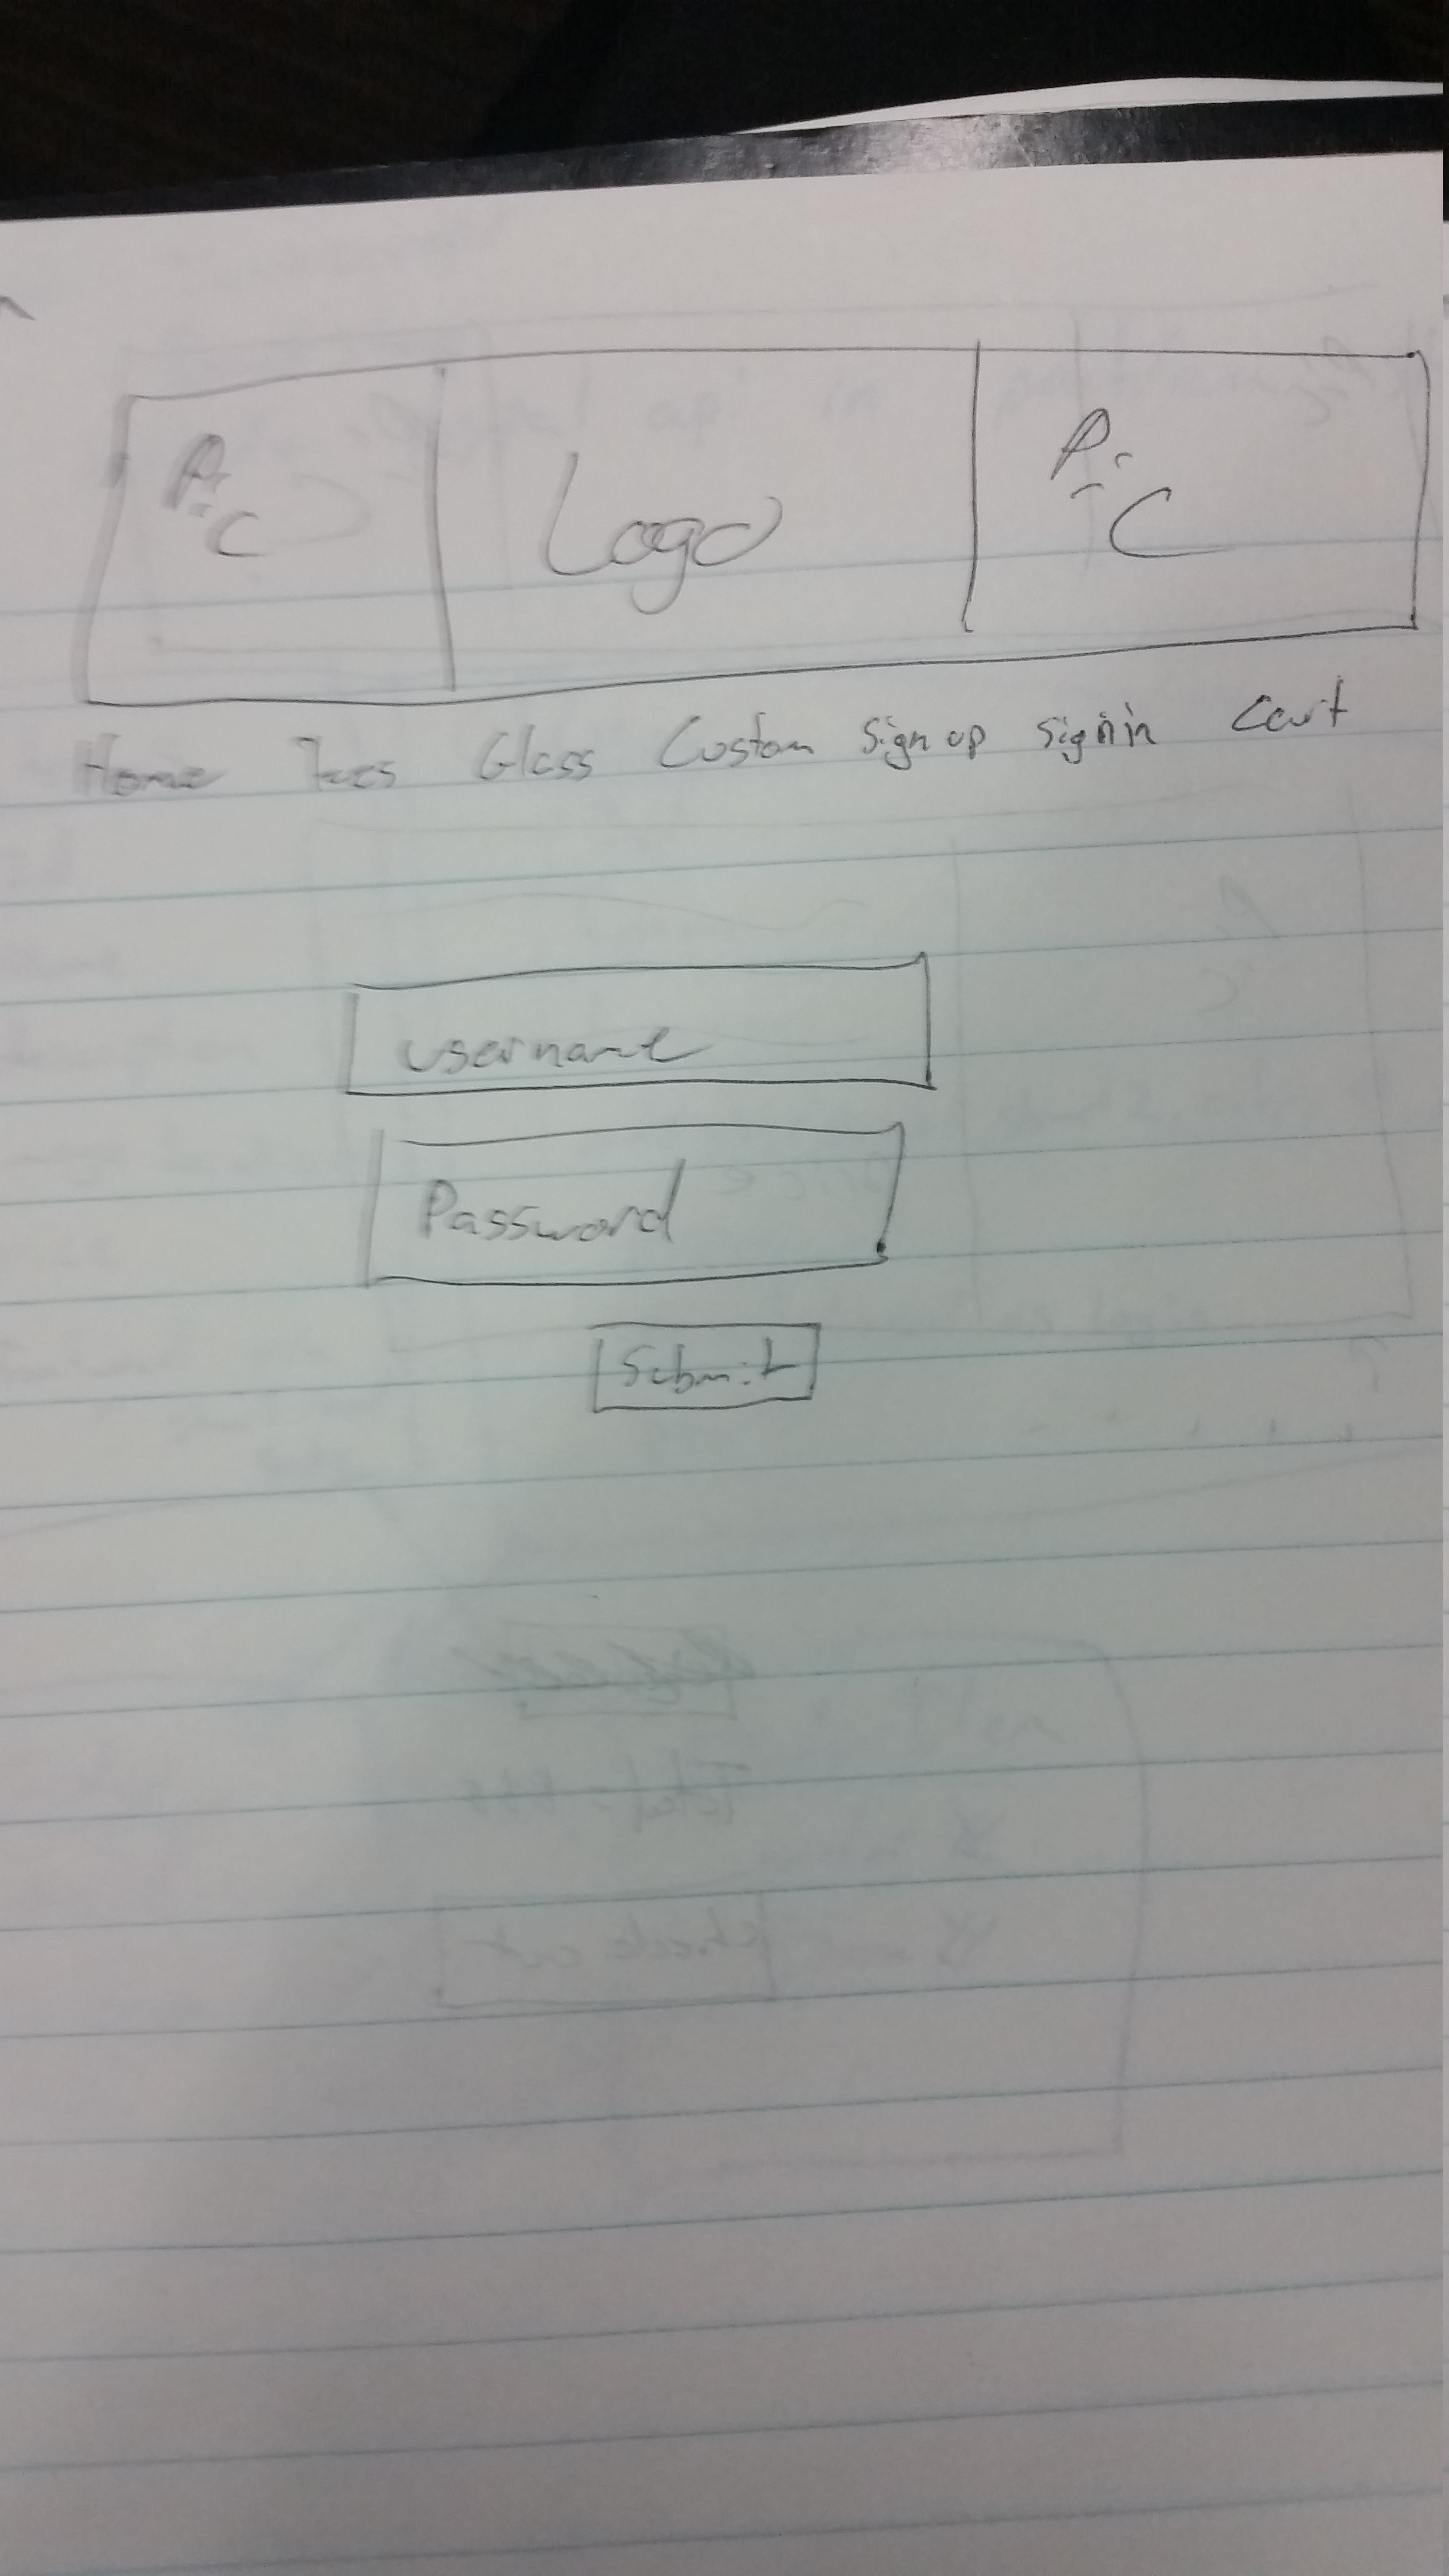 Pic Logo Pic
Home Tees Glass Custom Sign up Sign in Cart
username
Password
Submit